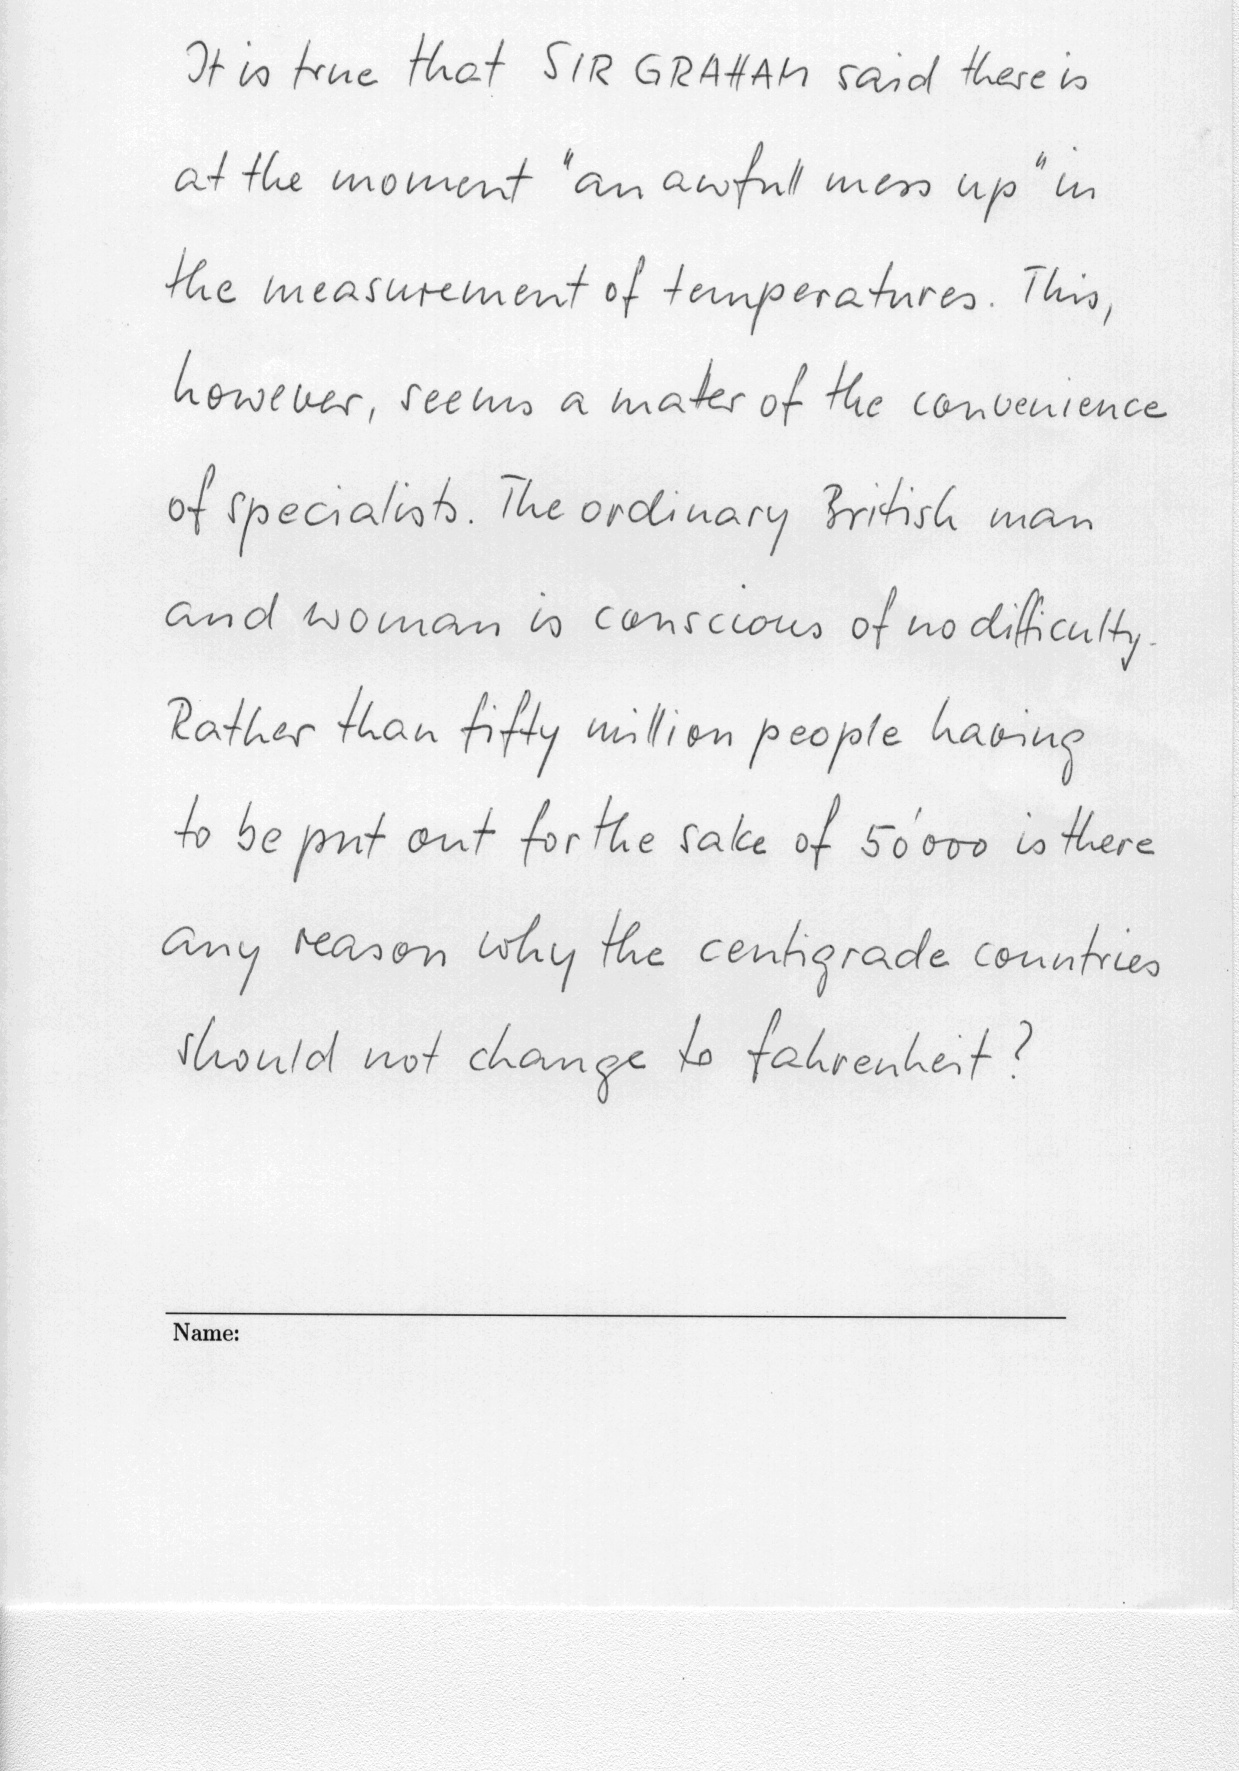 It is true that SIR GRAHAM said there is
at the moment "an awfull mess up" in
the measurement of temperatures. This,
however, seems a matter of the convenience
of specialists. The ordinary British man
and woman is conscious of no difficulty.
Rather than fifty million people having
to be put out for the sake of 50'000 is there
any reason why the centigrade countries
should not change to fahrenheit?
Name: